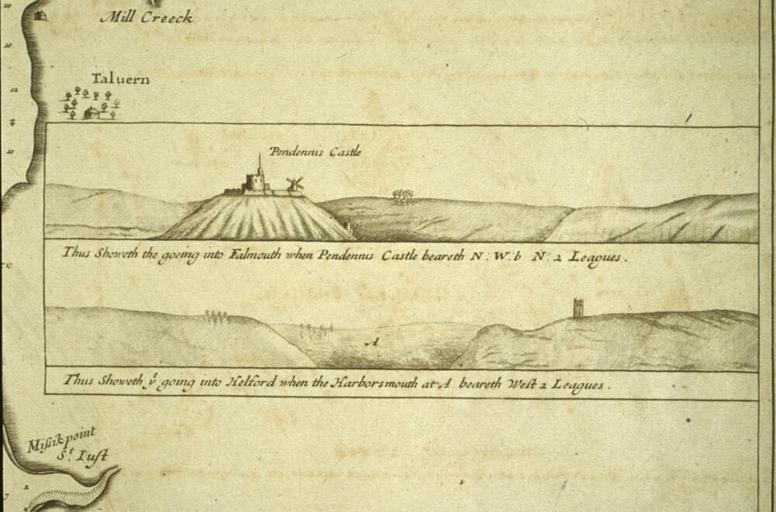 Mill Creeck
Taluern
Pendennis Castle
Thus Showeth the goeing into Falmouth when Pendennis Castle beareth N. W. b N. 2 Leagues.
A
Thus Showeth yᵉ going into Helford when the Harborsmouth at A beareth West 2 Leagues.
Missikpoint
Sᵗ Iust